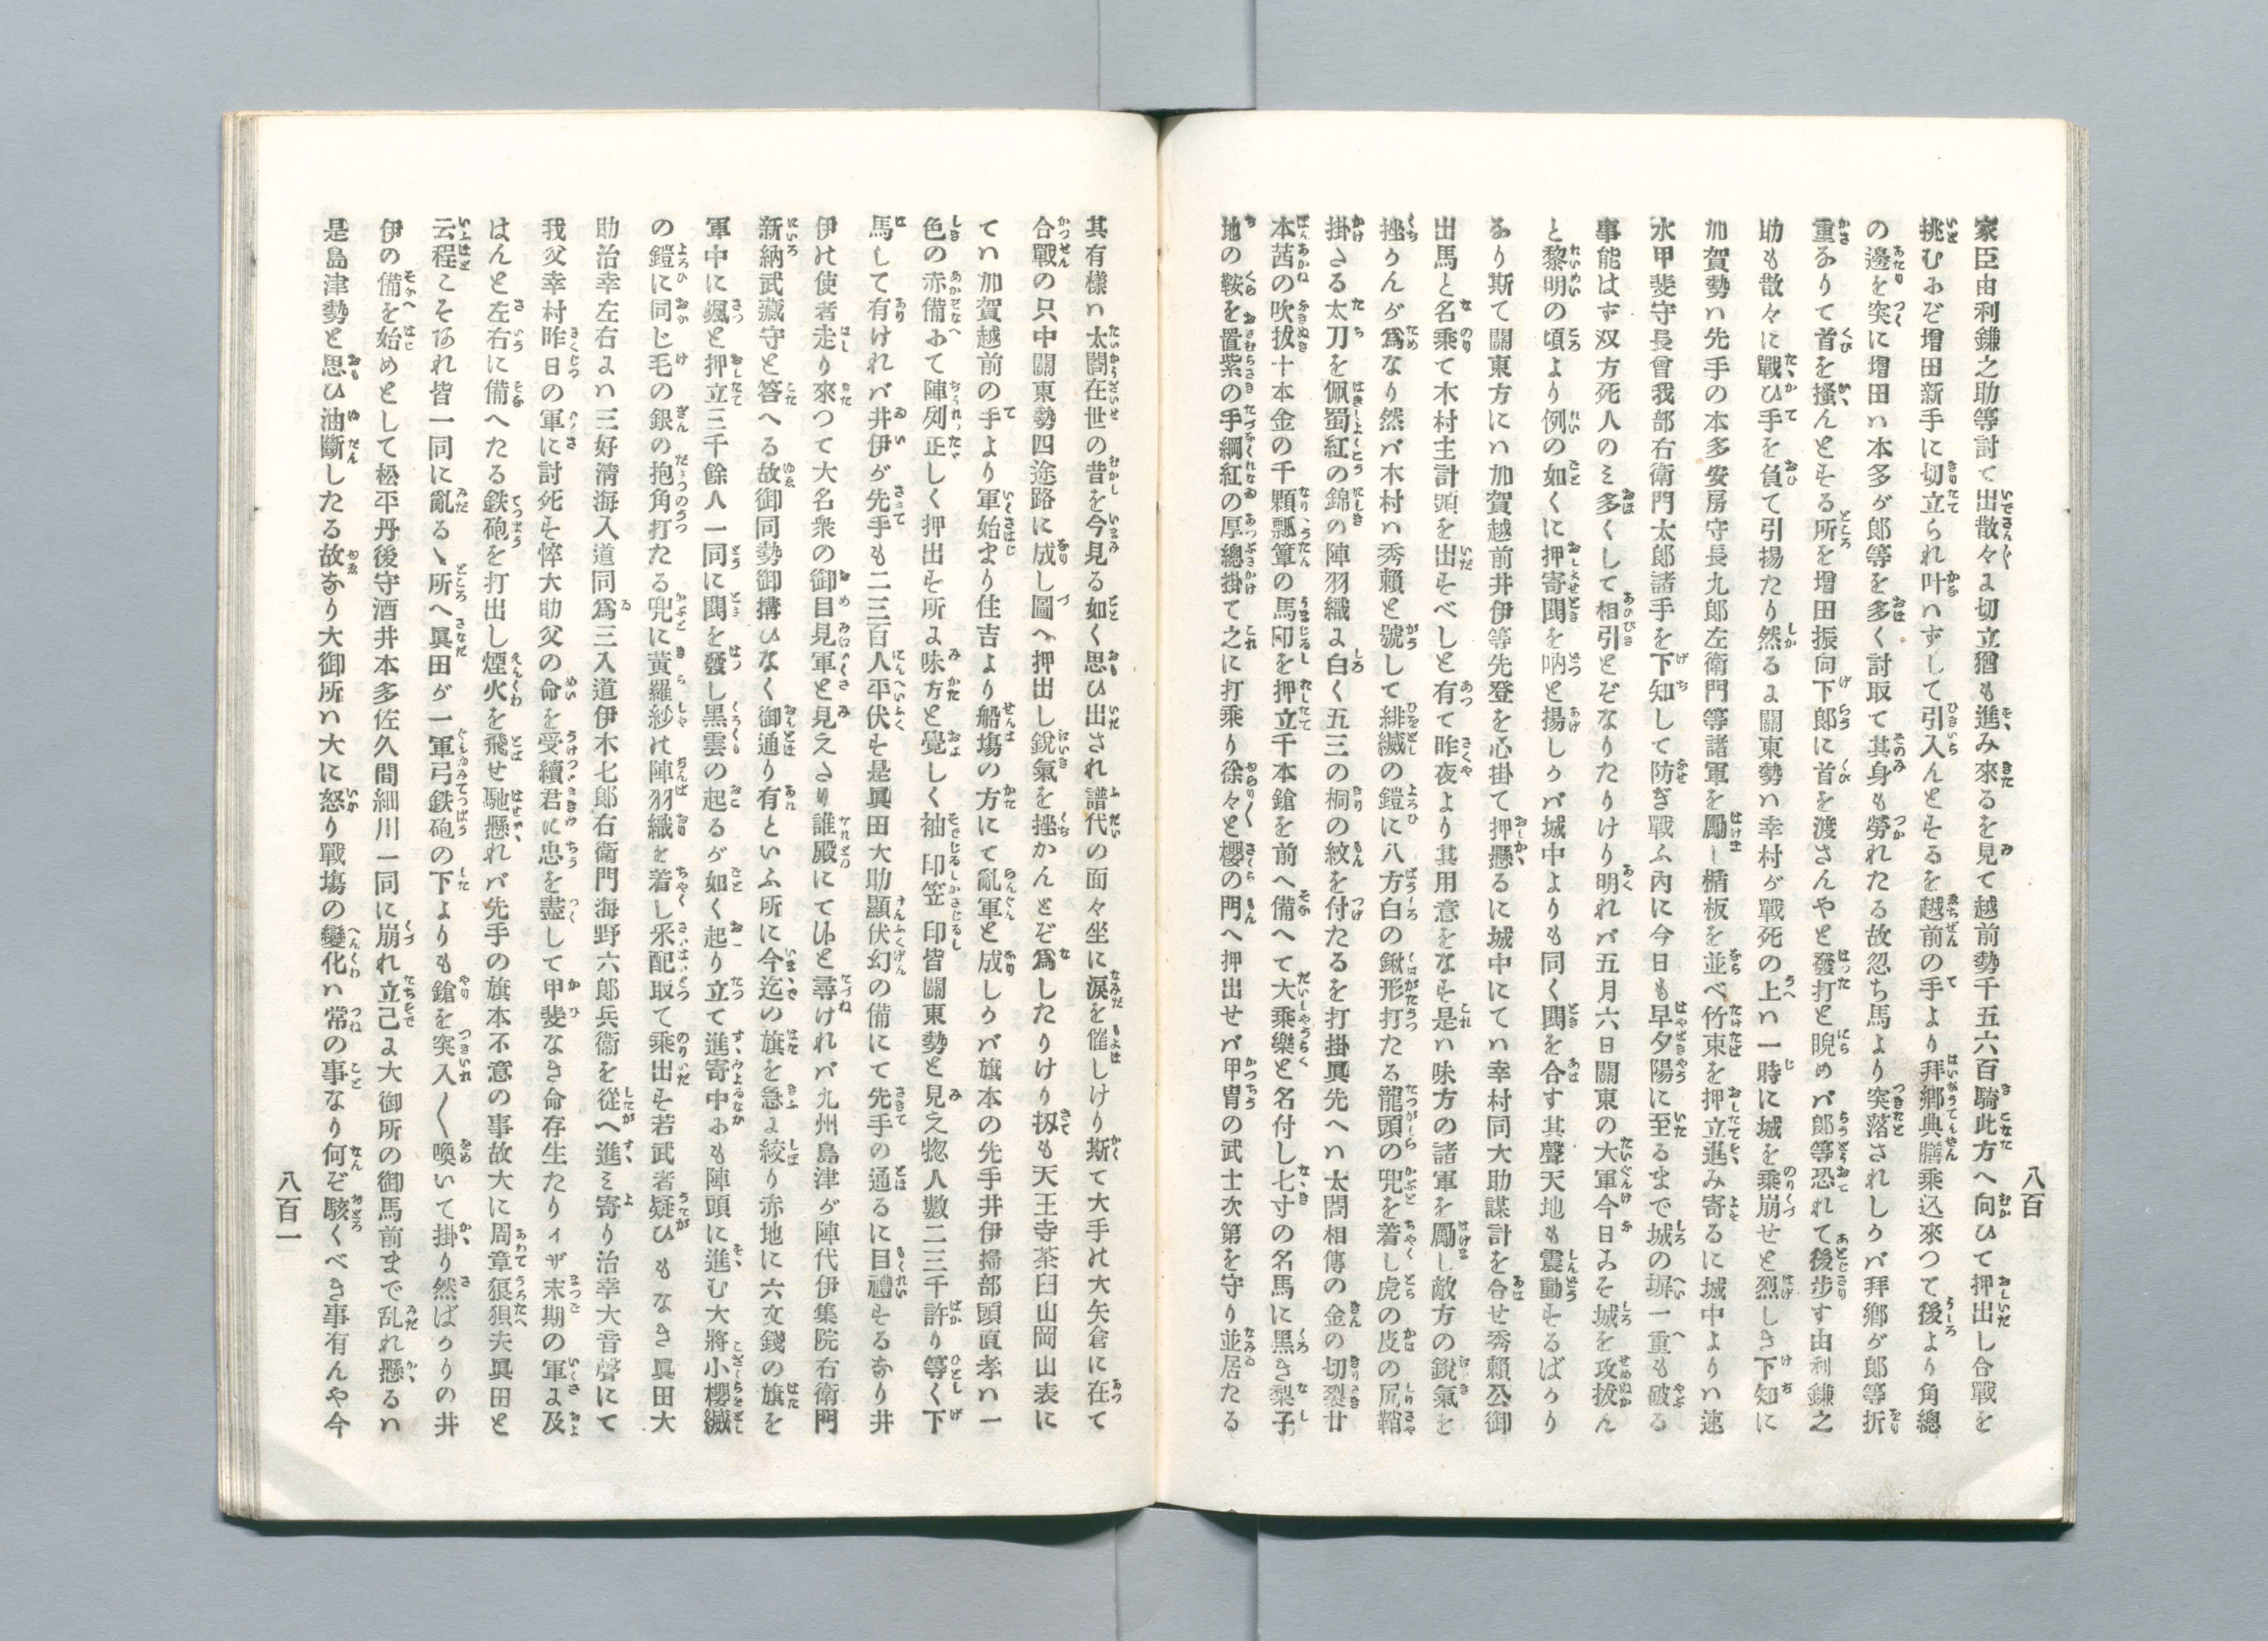 八百
家臣由利鎌之助等討て出散々に切立猶も進み來るを見て越前勢千五六百騎此方へ向ひて押出し合戰を
挑むにぞ增田新手に切立られ叶はずして引入んとする を越前の手より拜鄕典膳乘込來つて後より角總
の邊を突に增田は本多が郎等を多く討取て其身も勞れたる故忽ち馬より突落されしかば拜鄕が郎等折
重なりて首を搔んとする所を增田振向下郎に首を渡さんやと發打と睨めば郎等恐れて後步す由利鎌之
助も散々に戰ひ手を負て引揚たり然るに關東勢は幸村が戰死の上は一時に城を乘崩せと烈しき下知に
加賀勢は先手の本多安房守長九郎左衛門等諸軍を勵し楯板を並べ竹束を押立進み寄るに城中よりは速
水甲斐守長曾我部右衛門太郎諸手を下知して防ぎ戰ふ內に今日も早夕陽に至るまで城の塀一重も破る
事能はず双方死人のみ多くして相引とぞなりたりけり明れば五月六日關東の大軍今日こそ城を攻拔ん
と黎明の頃より例の如くに押寄鬨を吶と揚しかば城中よりも同く鬨を合す其聲天地も震動するばかり
なり斯て關東方には加賀越前井伊等先登を心掛て押懸るに城中にては幸村同大助謀計を合せ秀賴公御
出馬と名乘て木村主計頭を出すべしと有て昨夜より其用意をなす是は味方の諸軍を勵し敵方の銳氣を
挫かんが爲なり然ば木村は秀賴と號して緋縅の鎧に八方白の鍬形打たる龍頭の兜を着し虎の皮の尻鞘
掛さる太刀を佩蜀紅の錦の陣羽織に白く五三の桐の紋を付たるを打掛眞先へは太閤相傳の金の切裂廿
本茜の吹拔十本金の千顆瓢簞の馬印を押立千本鎗を前へ備へて大乘樂と名付し七寸の名馬に黑き梨子
地の鞍を置紫の手綱紅の厚總掛て之に打乘り徐々と櫻の門へ押出せば甲冑の武士次第を守り並居たる
其有樣は太閤在世の昔を今見る如く思ひ出され譜代の面々坐に淚を催しけり斯て大手の大矢倉に在て
合戰の只中關東勢四途路に成し圖へ押出し銳氣を挫かんとぞ爲したりけり扨も天王寺茶臼山岡山表に
ては加賀越前の手より軍始まり住吉より船塲の方にて亂軍と成しかば旗本の先手井伊掃部頭直孝は一
色の赤備にて陣列正しく押出す所に味方と覺しく袖印笠印皆關東勢と見え惣人數二三千許り等く下
馬して有ければ井伊が先手も二三百人平伏す是眞田大助顯伏幻の備にて先手の通るに目禮するなり井
伊は使者走り來つて大名衆の御目見軍と見えさり誰殿にて候と尋ければ九州島津が陣代伊集院右衛門
新納武藏守と答へる故御同勢御搆ひなく御通り有といふ所に今迄の旗を急に絞り赤地に六文錢の旗を
軍中に颯と押立三千餘人一同に鬨を發し黑雲の起るが如く起り立て進寄中にも陣頭に進む大將小櫻縅
の鎧に同じ毛の銀の抱角打たる兜に黃羅紗の陣羽織を着し采配取て乘出す若武者疑ひもなき眞田大
助治幸左右には三好淸海入道同爲三入道伊木七郎右衛門海野六郎兵衞を從へ進み寄り治幸大音聲にて
我父幸村昨日の軍に討死す悴大助父の命を受續君に忠を盡して甲斐なき命存生たりィザ末期の軍に及
はんと左右に備へたる鉄砲を打出し煙火を飛せ馳懸れば先手の旗本不意の事故大に周章狼狽夫眞田と
云程こそあれ皆一同に亂るゝ所へ眞田が一軍弓鉄砲の下よりも鎗を突入〱喚いて掛り然ばかりの井
伊の備を始めとして松平丹後守酒井本多佐久間細川一同に崩れ立己に大御所の御馬前まで乱れ懸るは
是島津勢と思ひ油斷したる故なり大御所は大に怒り戰塲の變化は常の事なり何ぞ駭くべき事有んや今
八百一